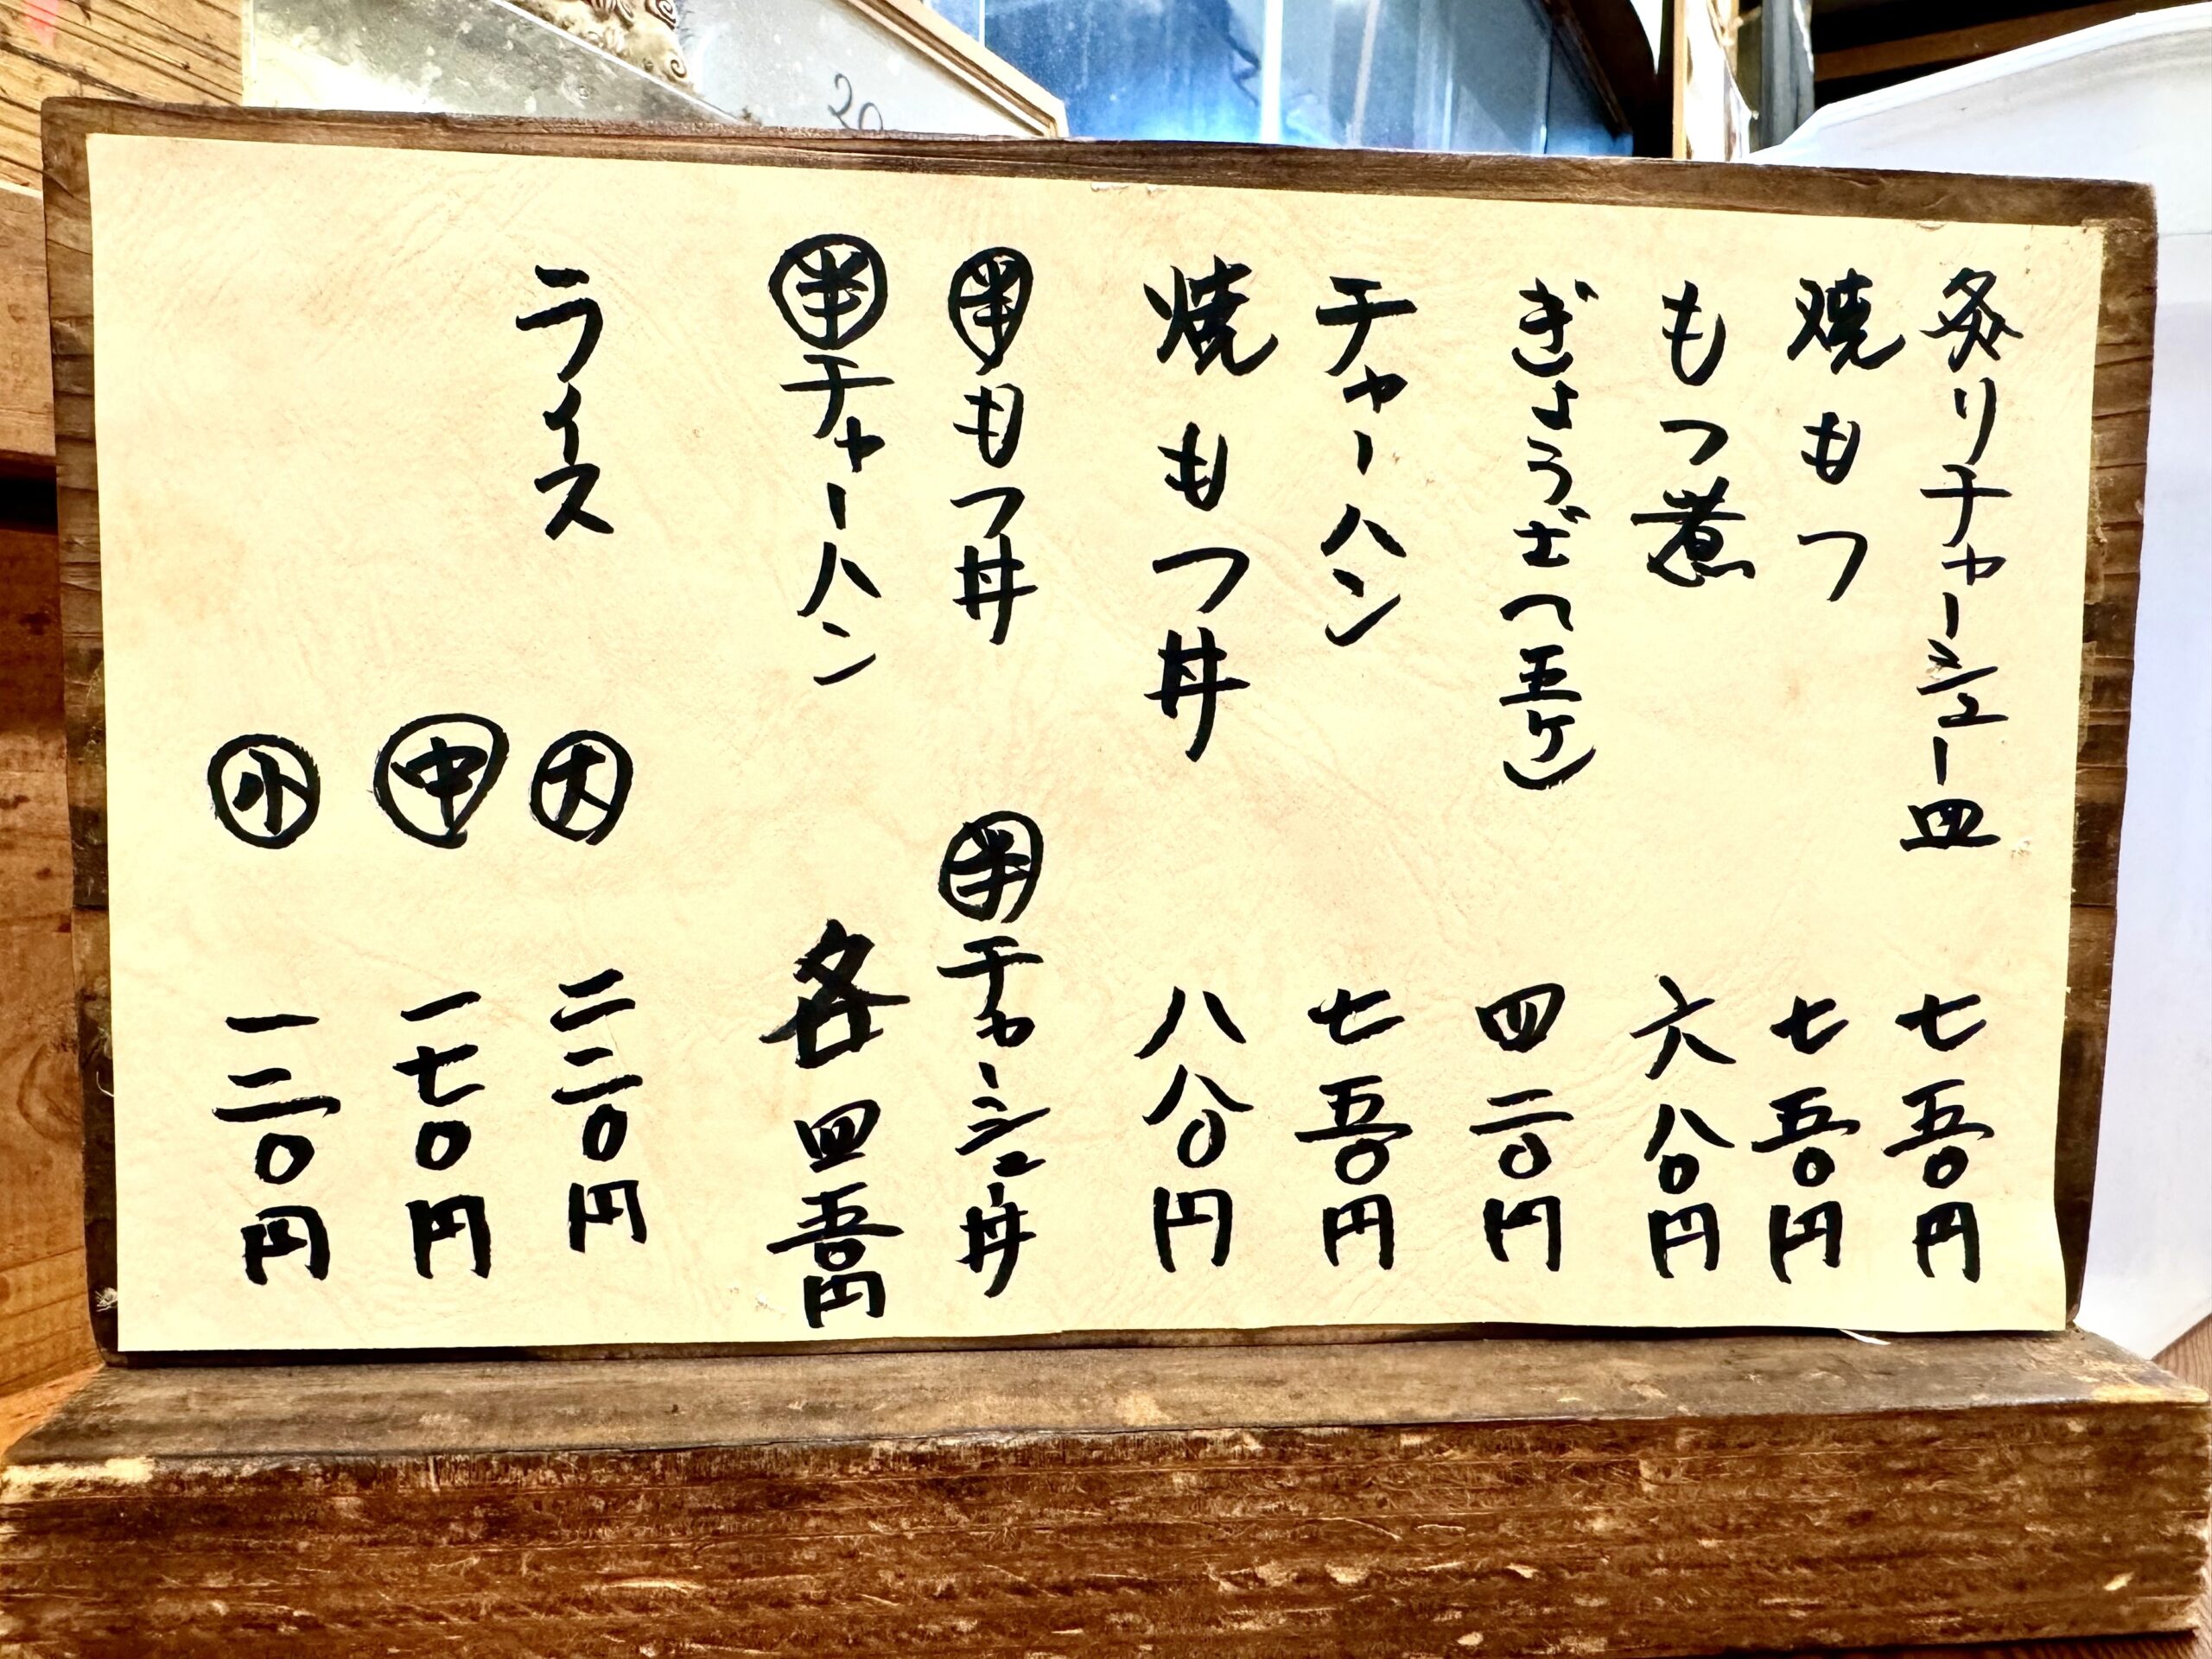 炙りチャーシュー皿 七五〇円
焼もつ 七五〇円
もつ煮 六八〇円
ぎょうざ(五ケ) 四二〇円
チャーハン 七五〇円
焼もつ丼 八八〇円
㊥もつ丼 ㊥チャーシュー丼
㊥チャーハン 各四五〇円
ライス ㊅ 二二〇円
㊥ 一七〇円
㊔ 一二〇円